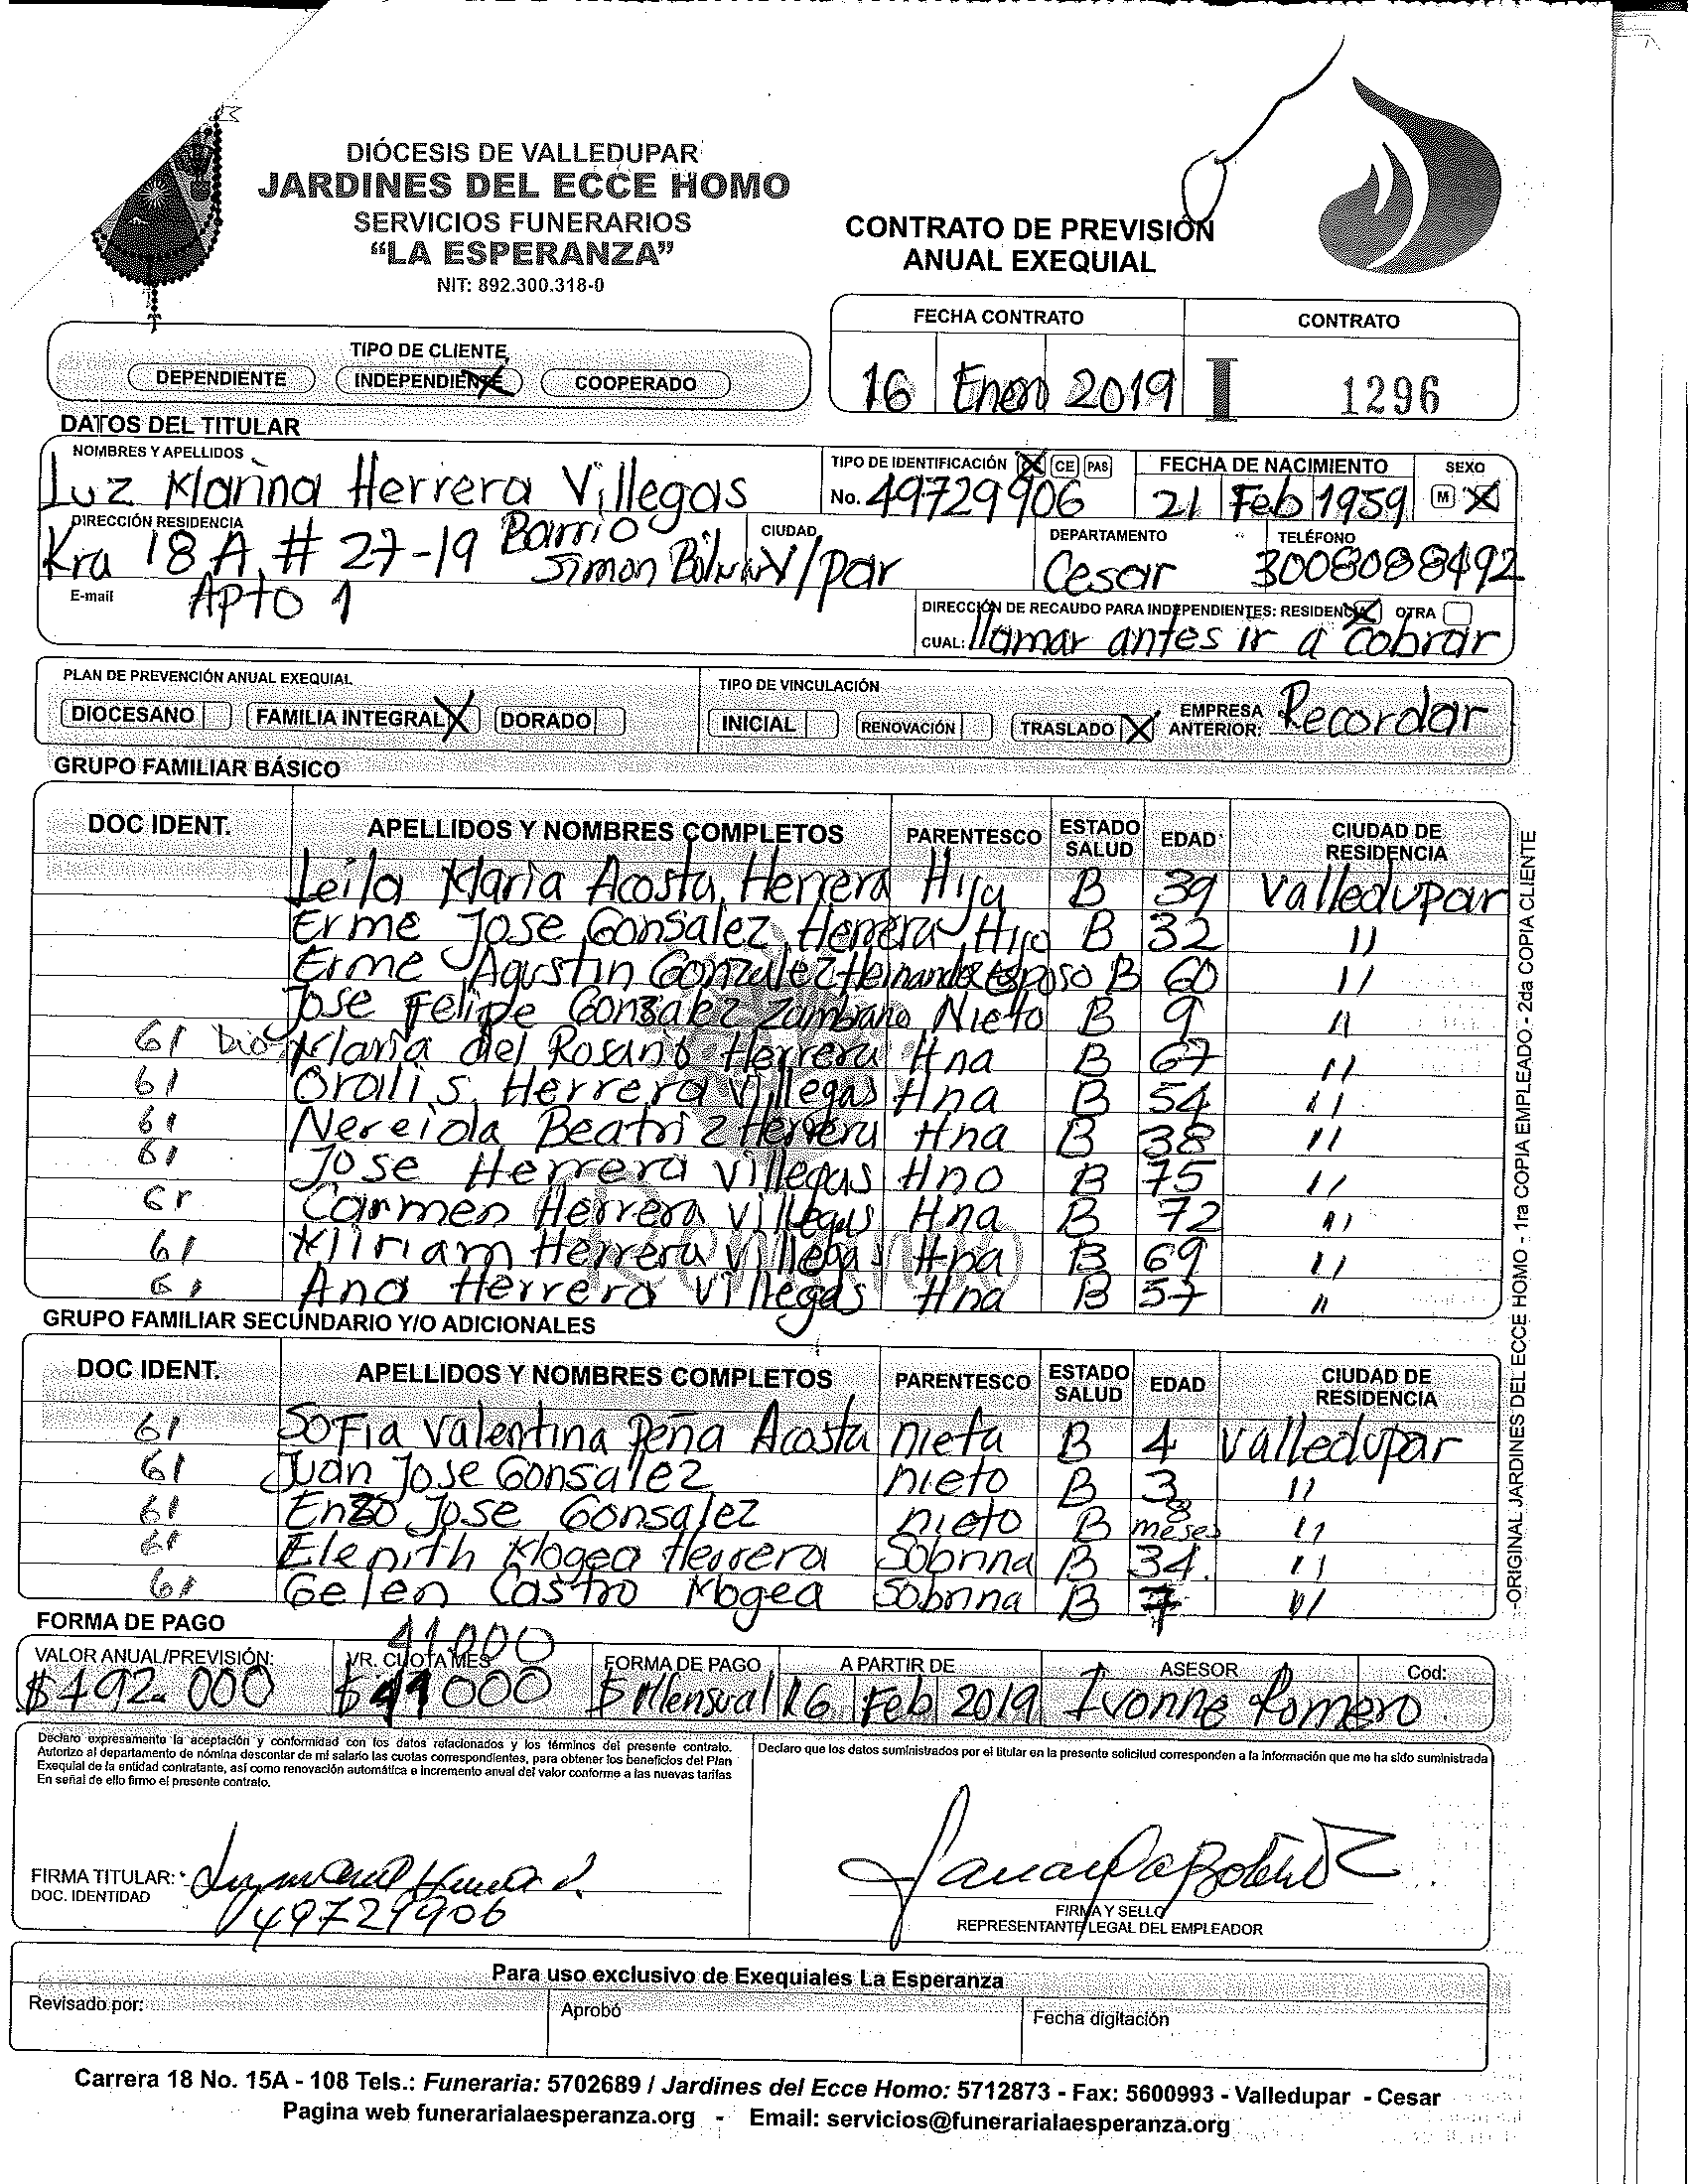 DIÓCESIS DE VALLEDUPAR
JARDINES DEL ECCE HOMO
SERVICIOS FUNERARIOS
“LA ESPERANZA”
NIT: 892.300.318-0
CONTRATO DE PREVISIÓN
ANUAL EXEQUIAL
FECHA CONTRATO CONTRATO
16 Enero 2019 I 1296
TIPO DE CLIENTE
DEPENDIENTE INDEPENDIENTE X COOPERADO
DATOS DEL TITULAR
NOMBRES Y APELLIDOS TIPO DE IDENTIFICACIÓN X CE PAS FECHA DE NACIMIENTO SEXO
Luz Marina Herrera Villegas No. 49729906 21 Feb 1959 M X
DIRECCIÓN RESIDENCIA CIUDAD DEPARTAMENTO TELÉFONO
Kra 18 A # 27-19 Barrio Simon Bolivar V/par Cesar 3008088492
E-mail Apto 1
DIRECCIÓN DE RECAUDO PARA INDEPENDIENTES: RESIDENCIA X OTRA
CUAL: llamar antes ir a cobrar
PLAN DE PREVENCIÓN ANUAL EXEQUIAL TIPO DE VINCULACIÓN
DIOCESANO FAMILIA INTEGRAL X DORADO INICIAL RENOVACIÓN TRASLADO X EMPRESA ANTERIOR: Recordar
GRUPO FAMILIAR BÁSICO
DOC IDENT. APELLIDOS Y NOMBRES COMPLETOS PARENTESCO ESTADO SALUD EDAD CIUDAD DE RESIDENCIA
Leila Maria Acosta Herrera Hija B 39 Valledupar
Erme Jose Gonsalez Herrera Hijo B 32 11
Erme Agustin Gonzalez Hernandez Esposo B 60 11
Jose Felipe Gonzalez Zambrano Nieto B 9 11
61 Maria del Rosario Herrera Hna B 67 11
61 Oralis Herrera Villegas Hna B 54 11
61 Nereida Beatriz Herrera Hna B 38 11
61 Jose Herrera Villegas Hno B 75 11
61 Carmen Herrera Villegas Hna B 72 11
61 Miriam Herrera Villegas Hna B 69 11
61 Ana Herrera Villegas Hna B 57 11
GRUPO FAMILIAR SECUNDARIO Y/O ADICIONALES
DOC IDENT. APELLIDOS Y NOMBRES COMPLETOS PARENTESCO ESTADO SALUD EDAD CIUDAD DE RESIDENCIA
61 Sofia Valentina Peña Acosta nieta B 4 Valledupar
61 Juan Jose Gonsalez nieto B 3 11
61 Enzo Jose Gonsalez nieto B 8 meses 11
61 Elenith Mogea Herrera Sobrina B 34 11
61 Gelen Castro Mogea Sobrina B 7 11
FORMA DE PAGO
41.000
VALOR ANUAL/PREVISIÓN: VR. CUOTA MES FORMA DE PAGO A PARTIR DE ASESOR Cod:
$492.000 $41000 $ Mensual 16 Feb 2019 Ivonne Romero
Declaro expresamento la aceptación y conformidad con los datos relacionados y los términos del presente contrato.
Autorizo al departamento de nómina descontar de mi salario las cuotas correspondientes, para obtener los beneficios del Plan
Exequial de la entidad contratante, así como renovación automática e incremento anual del valor conforme a las nuevas tarifas
En señal de ello firmo el presente contrato.
Declaro que los datos suministrados por el titular en la presente solicitud corresponden a la información que me ha sido suministrada
FIRMA TITULAR:
DOC. IDENTIDAD
49729906
FIRMA Y SELLO
REPRESENTANTE LEGAL DEL EMPLEADOR
Para uso exclusivo de Exequiales La Esperanza
Revisado por: Aprobó Fecha digitación
Carrera 18 No. 15A - 108 Tels.: Funeraria: 5702689 / Jardines del Ecce Homo: 5712873 - Fax: 5600993 - Valledupar - Cesar
Pagina web funerarialaesperanza.org - Email: servicios@funerarialaesperanza.org
-ORIGINAL JARDINES DEL ECCE HOMO - 1ra COPIA EMPLEADO - 2da COPIA CLIENTE